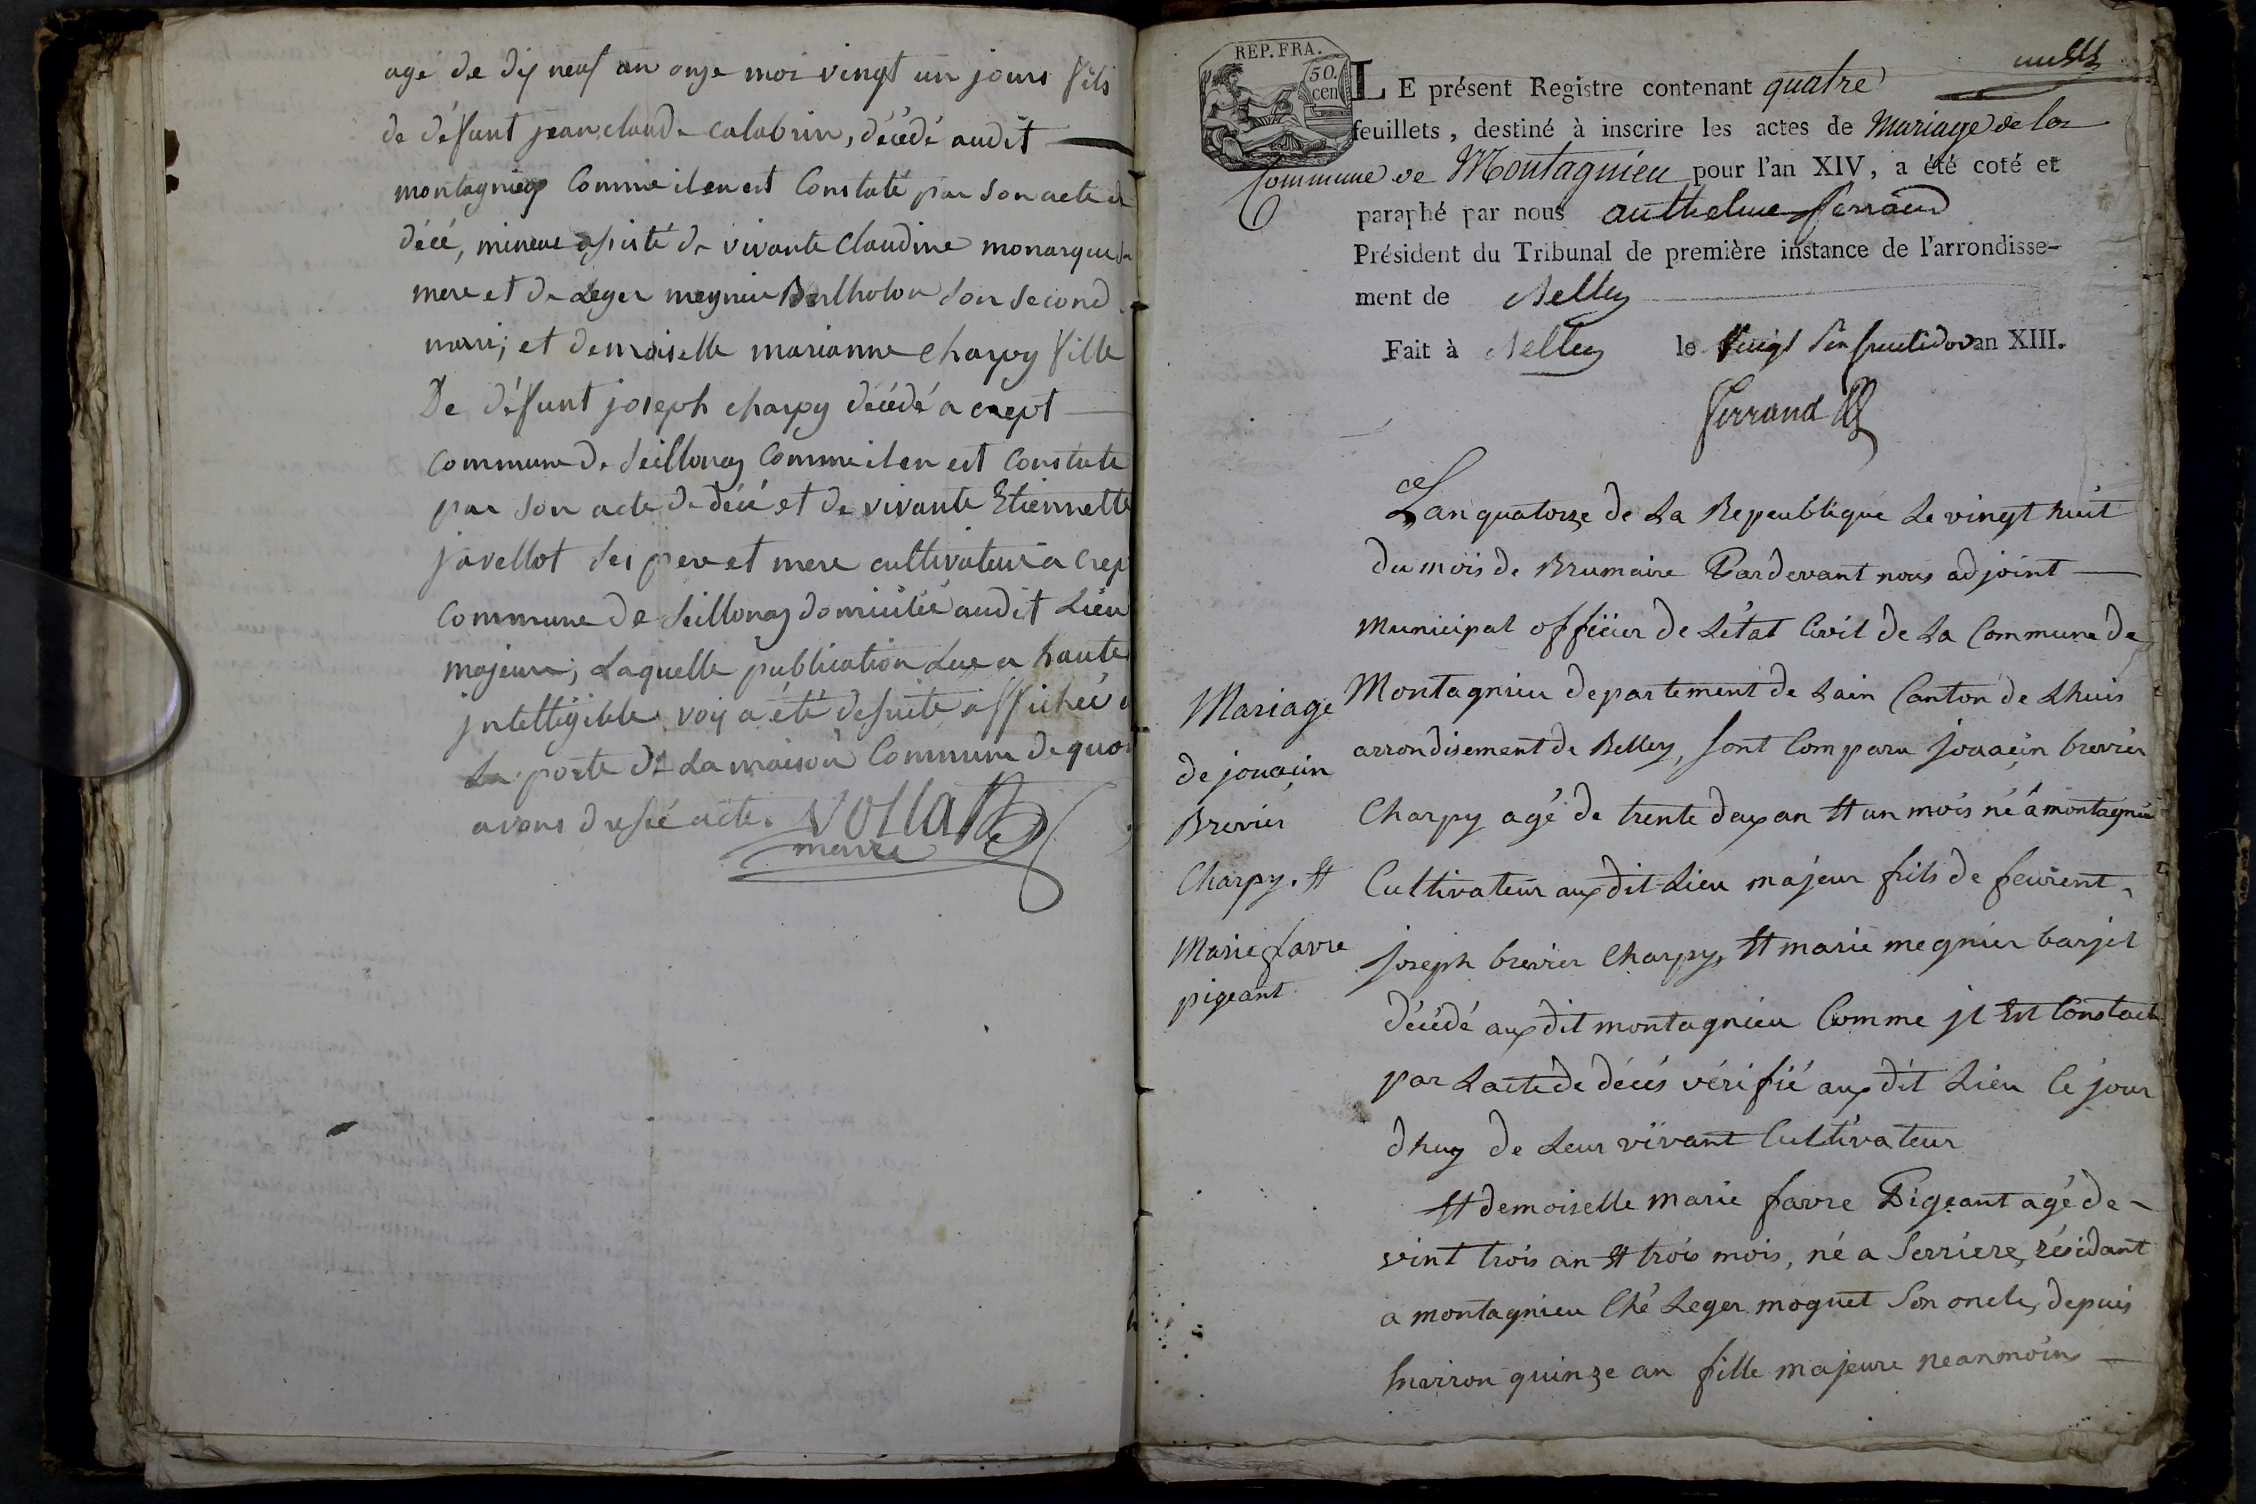 agé de dix neuf an onze moi vingt un jours fils
de défunt jean claude calabrin, décédé audit
montagnieu Comme il en est Constaté par son acte de
décé, mineur assisté de vivante Claudine monarque sa
mere et de Leger megnier Bertholon son second
mari; et demoiselle marianne charpy fille
De défunt joseph charpy décédé a crept
commune de Seillonaz Comme il en est Constate
par son acte de décé et de vivante Etiennette
javellot ses pere et mere cultivateur a crep
commune de Seillonaz domicilié audit Lieu
majeure; Laquelle publication Lue a haute
jntelligible voix a été desuite affichée a
La porte de La maison Commune de quoi
avons dressé acte. Vollat
maire
REP. FRA.
50.
cen
LE présent Registre contenant quatre
feuillets, destiné à inscrire les actes de Mariage de la
Commune de Montagnieu pour l'an XIV, a été coté et
paraphé par nous anthelme ferrand
Président du Tribunal de première instance de l'arrondisse-
ment de Belley
Fait à Belley le Vingt fructidor an XIII.
Ferrand
Lan quatorze de La Repeublique Le vingt huit
du mois de Brumaire Pardevant nous adjoint
Municipal officier de Létat Civil de La Commune de
Montagnieu departement de Lain Canton de Lhuis
arrondisement de Belley, sont Comparu jouacin brevier
Charpy agé de trente deux an et un mois né a montagnieu
Cultivateur aux dit Lieu majeur fils de feu
joseph brevier Charpy, et marie megnier barjet
décédé aux dit montagnieu Comme jl Est Constaté
par Lacte de décés vérifié aux dit Lieu Ce jour
dhuy de Leur vivant Cultivateur
Et demoiselle marie favre Pigeant agé de
vint trois an et trois mois, né a Serriere, résidant
a montagnieu Ché Leger moguet Son oncle, depuis
Environ quinze an fille majeure neanmoins
Mariage
de jouacin
Brevier
Charpy. et
Marie favre
pigeant